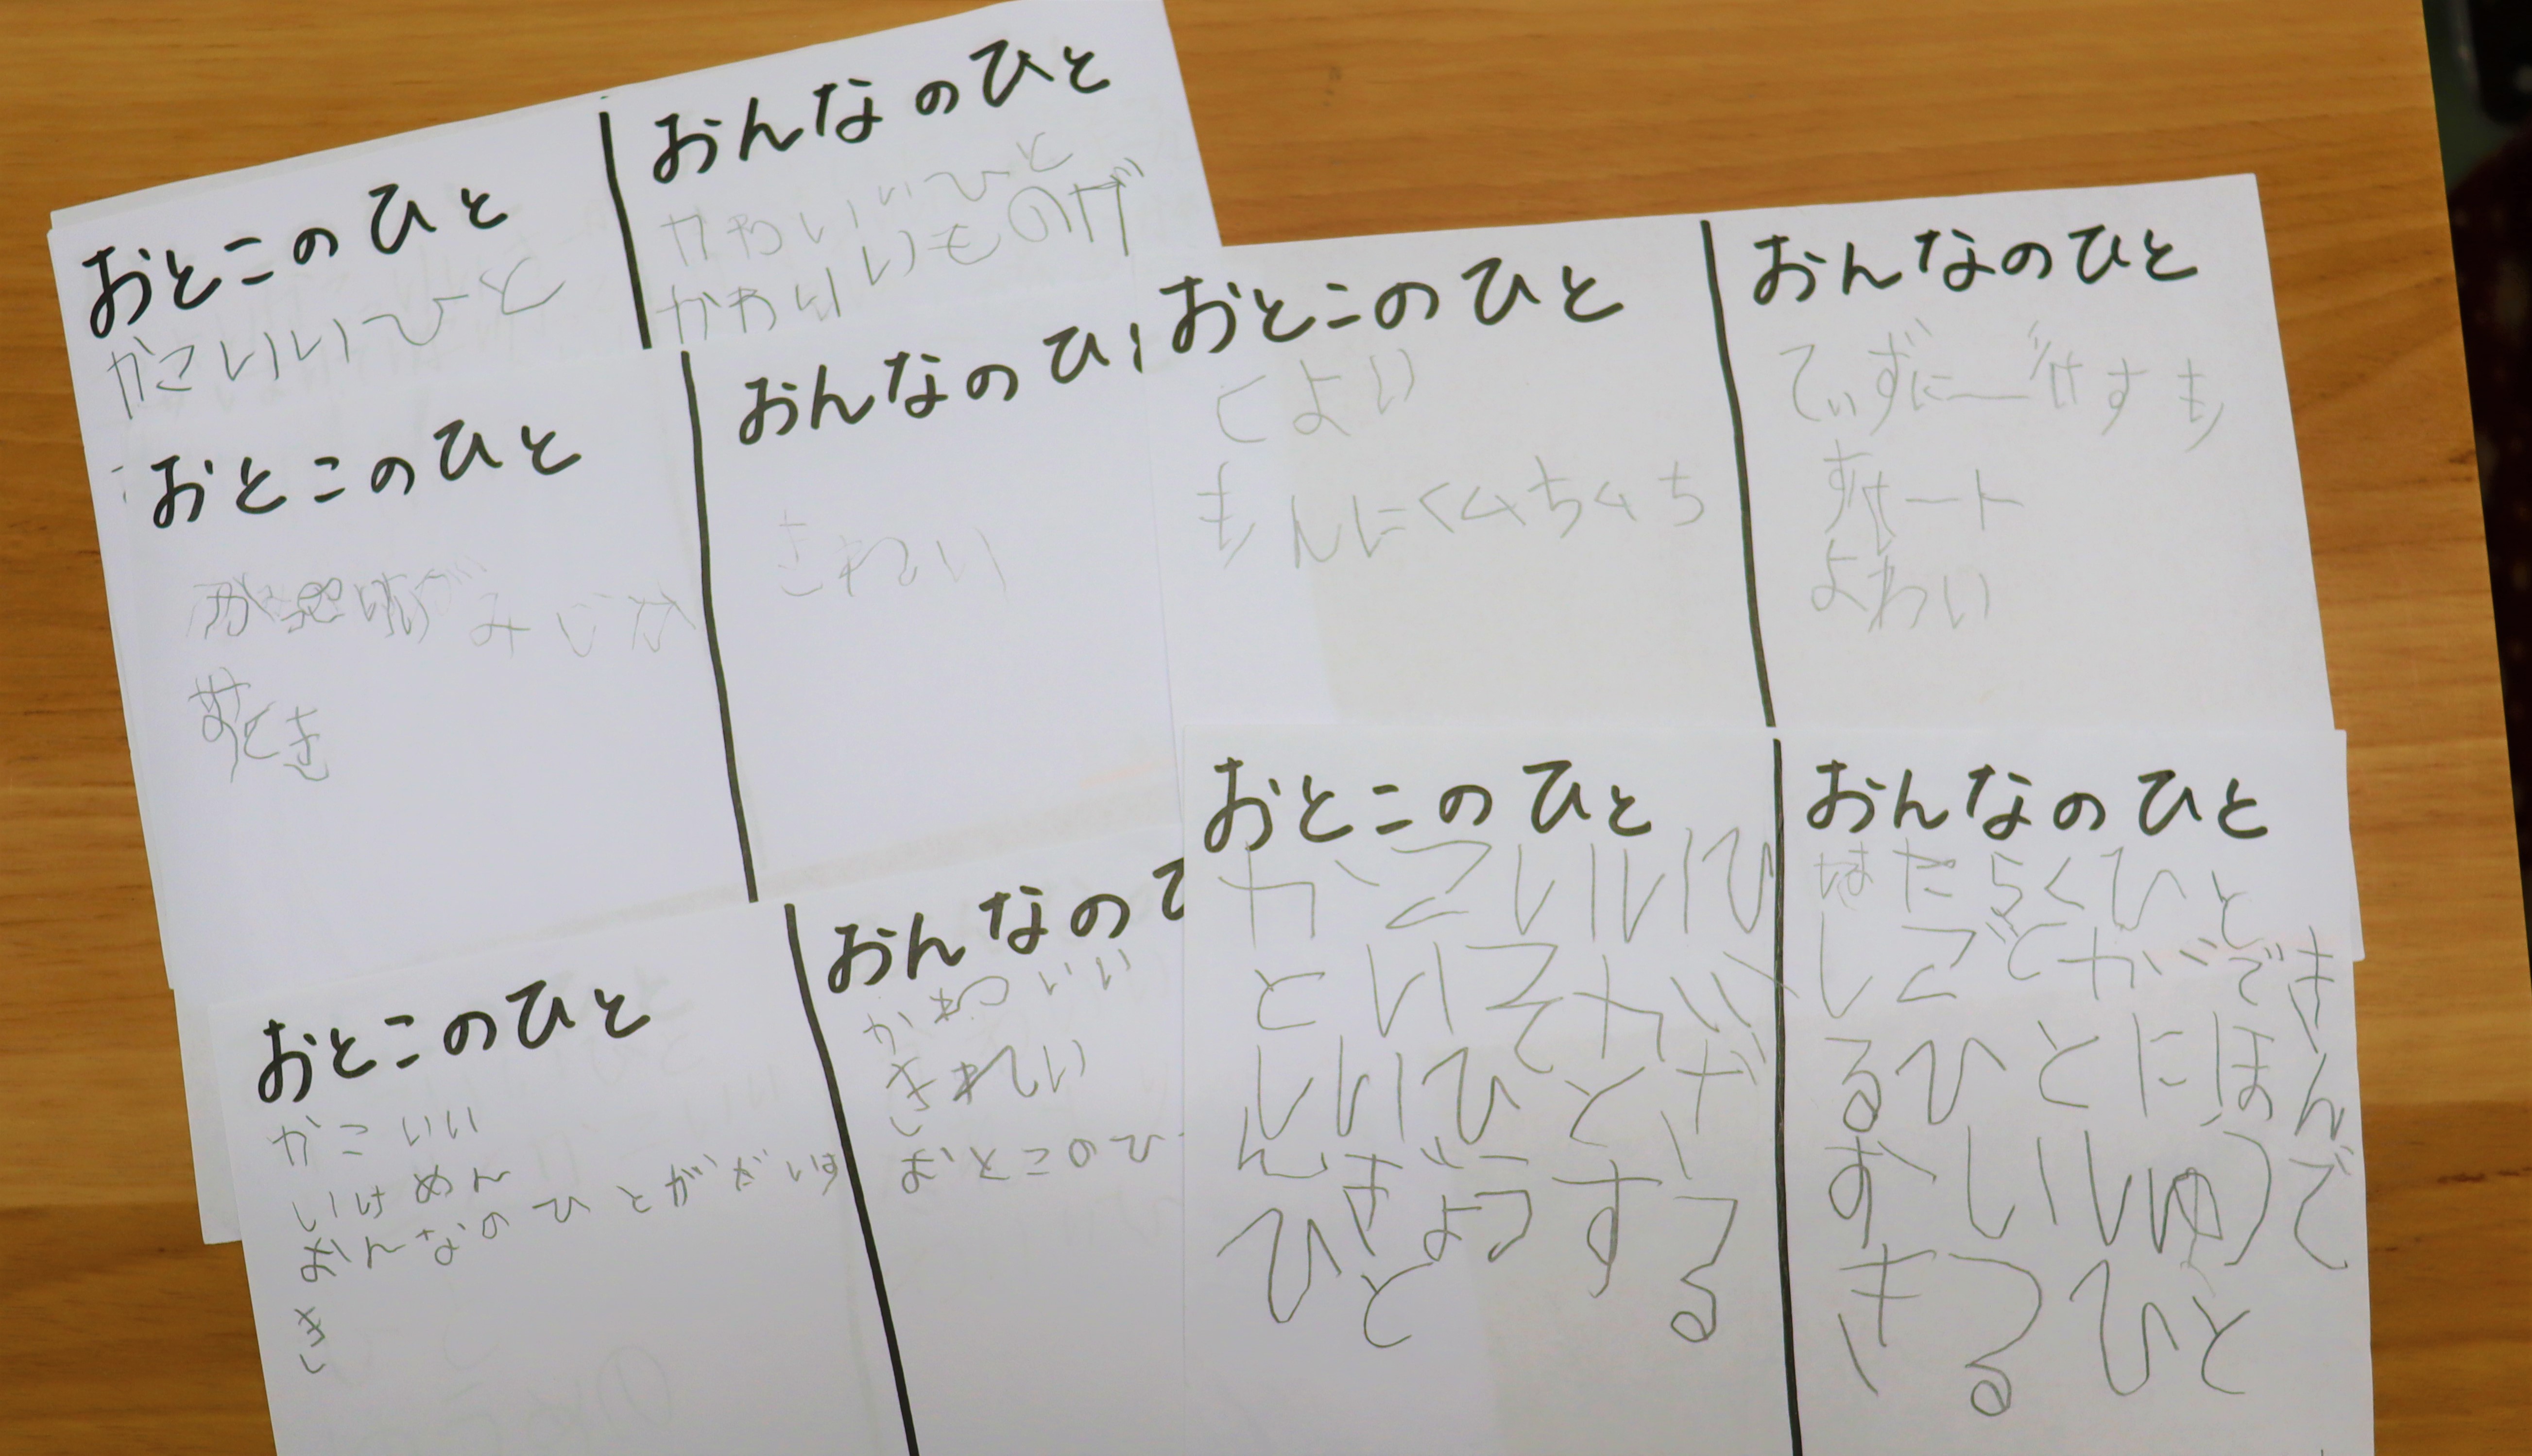 おとこのひと
かこいいひと
おんなのひと
かわいいひと
かわいいものが
おとこのひと
みじか
おんなのひ
きれい
おとこのひと
かこいい
いけめん
おんなのひとがだいす
き
おんなの
かわいい
きれい
おとこのひ
おとこのひと
くよい
もんにくムちムち
おんなのひと
よわい
おとこのひと
かこいいひ
といてかい
いいひとが
んぎょうする
ひと
おんなのひと
はたらくひと
しごとかでき
るひとにほん
おいしゅうで
きるひと